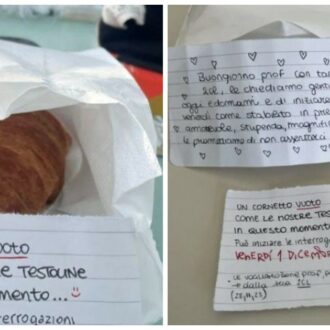 VUOTO
RE TESTOLINE
MOMENTO...
terrogazioni
Buongiorno prof con ta
2EL, le chiediamo genti
oggi e domani e di iniziare
venerdì come stabilito in pre
amorevole, stupenda, magnifi
le promettiamo di non assentarci
UN CORNETTO VUOTO
COME LE NOSTRE TES
IN QUESTO MOMENTO
Può iniziare le interroga
VENERDÌ 1 DICEMBR
LE VOGLIAMO BENE PROF,
dalla sua 2EL